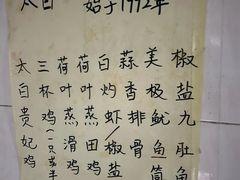 太白 始于1992年
太白贵妃鸡
三杯鸡(一只或半
荷叶蒸滑鸡
荷叶蒸田鸡
白灼虾/椒盐
蒜香排骨
美极鱿鱼筒
椒盐九肚鱼